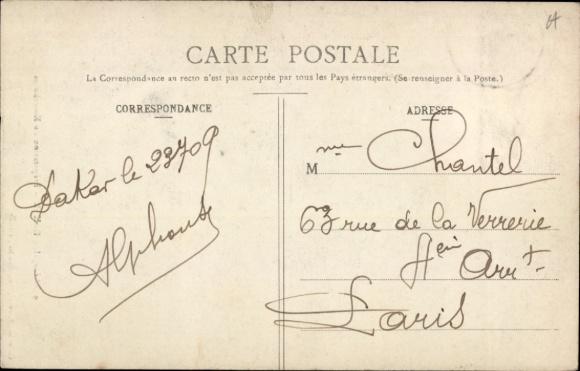 CARTE POSTALE
La Correspondance au recto n'est pas acceptée par tous les Pays étrangers. (Se renseigner à la Poste.)
CORRESPONDANCE
Dakar le 23 7 09
Alphonse
ADRESSE
Mme Chantel
63 rue de la Verrerie
Arrt
Paris